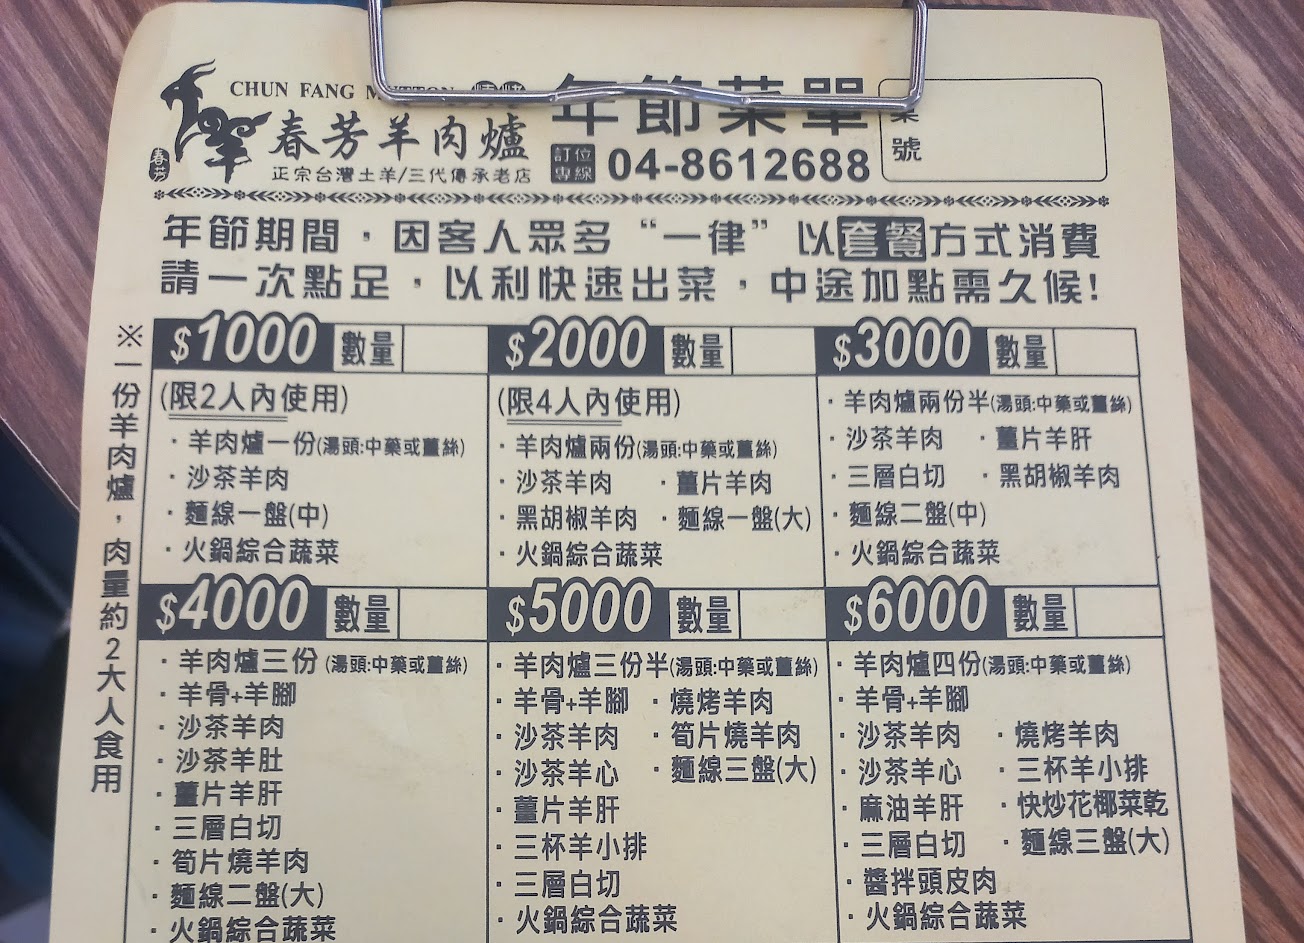 CHUN FANG MUTTON
年節菜單
春芳羊肉爐
春芳
正宗台灣土羊/三代傳承老店
訂位專線 04-8612688
桌號
年節期間，因客人眾多“一律”以套餐方式消費
請一次點足，以利快速出菜，中途加點需久候!
※一份羊肉爐，肉量約2大人食用
$1000 數量
(限2人內使用)
·羊肉爐一份(湯頭:中藥或薑絲)
·沙茶羊肉
·麵線一盤(中)
·火鍋綜合蔬菜
$2000 數量
(限4人內使用)
·羊肉爐兩份(湯頭:中藥或薑絲)
·沙茶羊肉 ·薑片羊肉
·黑胡椒羊肉 ·麵線一盤(大)
·火鍋綜合蔬菜
$3000 數量
·羊肉爐兩份半(湯頭:中藥或薑絲)
·沙茶羊肉 ·薑片羊肝
·三層白切 ·黑胡椒羊肉
·麵線二盤(中)
·火鍋綜合蔬菜
$4000 數量
·羊肉爐三份(湯頭:中藥或薑絲)
·羊骨+羊腳
·沙茶羊肉
·沙茶羊肚
·薑片羊肝
·三層白切
·筍片燒羊肉
·麵線二盤(大)
·火鍋綜合蔬菜
$5000 數量
·羊肉爐三份半(湯頭:中藥或薑絲)
·羊骨+羊腳 ·燒烤羊肉
·沙茶羊肉 ·筍片燒羊肉
·沙茶羊心 ·麵線三盤(大)
·薑片羊肝
·三杯羊小排
·三層白切
·火鍋綜合蔬菜
$6000 數量
·羊肉爐四份(湯頭:中藥或薑絲)
·羊骨+羊腳
·沙茶羊肉 ·燒烤羊肉
·沙茶羊心 ·三杯羊小排
·麻油羊肝 ·快炒花椰菜乾
·三層白切 ·麵線三盤(大)
·醬拌頭皮肉
·火鍋綜合蔬菜